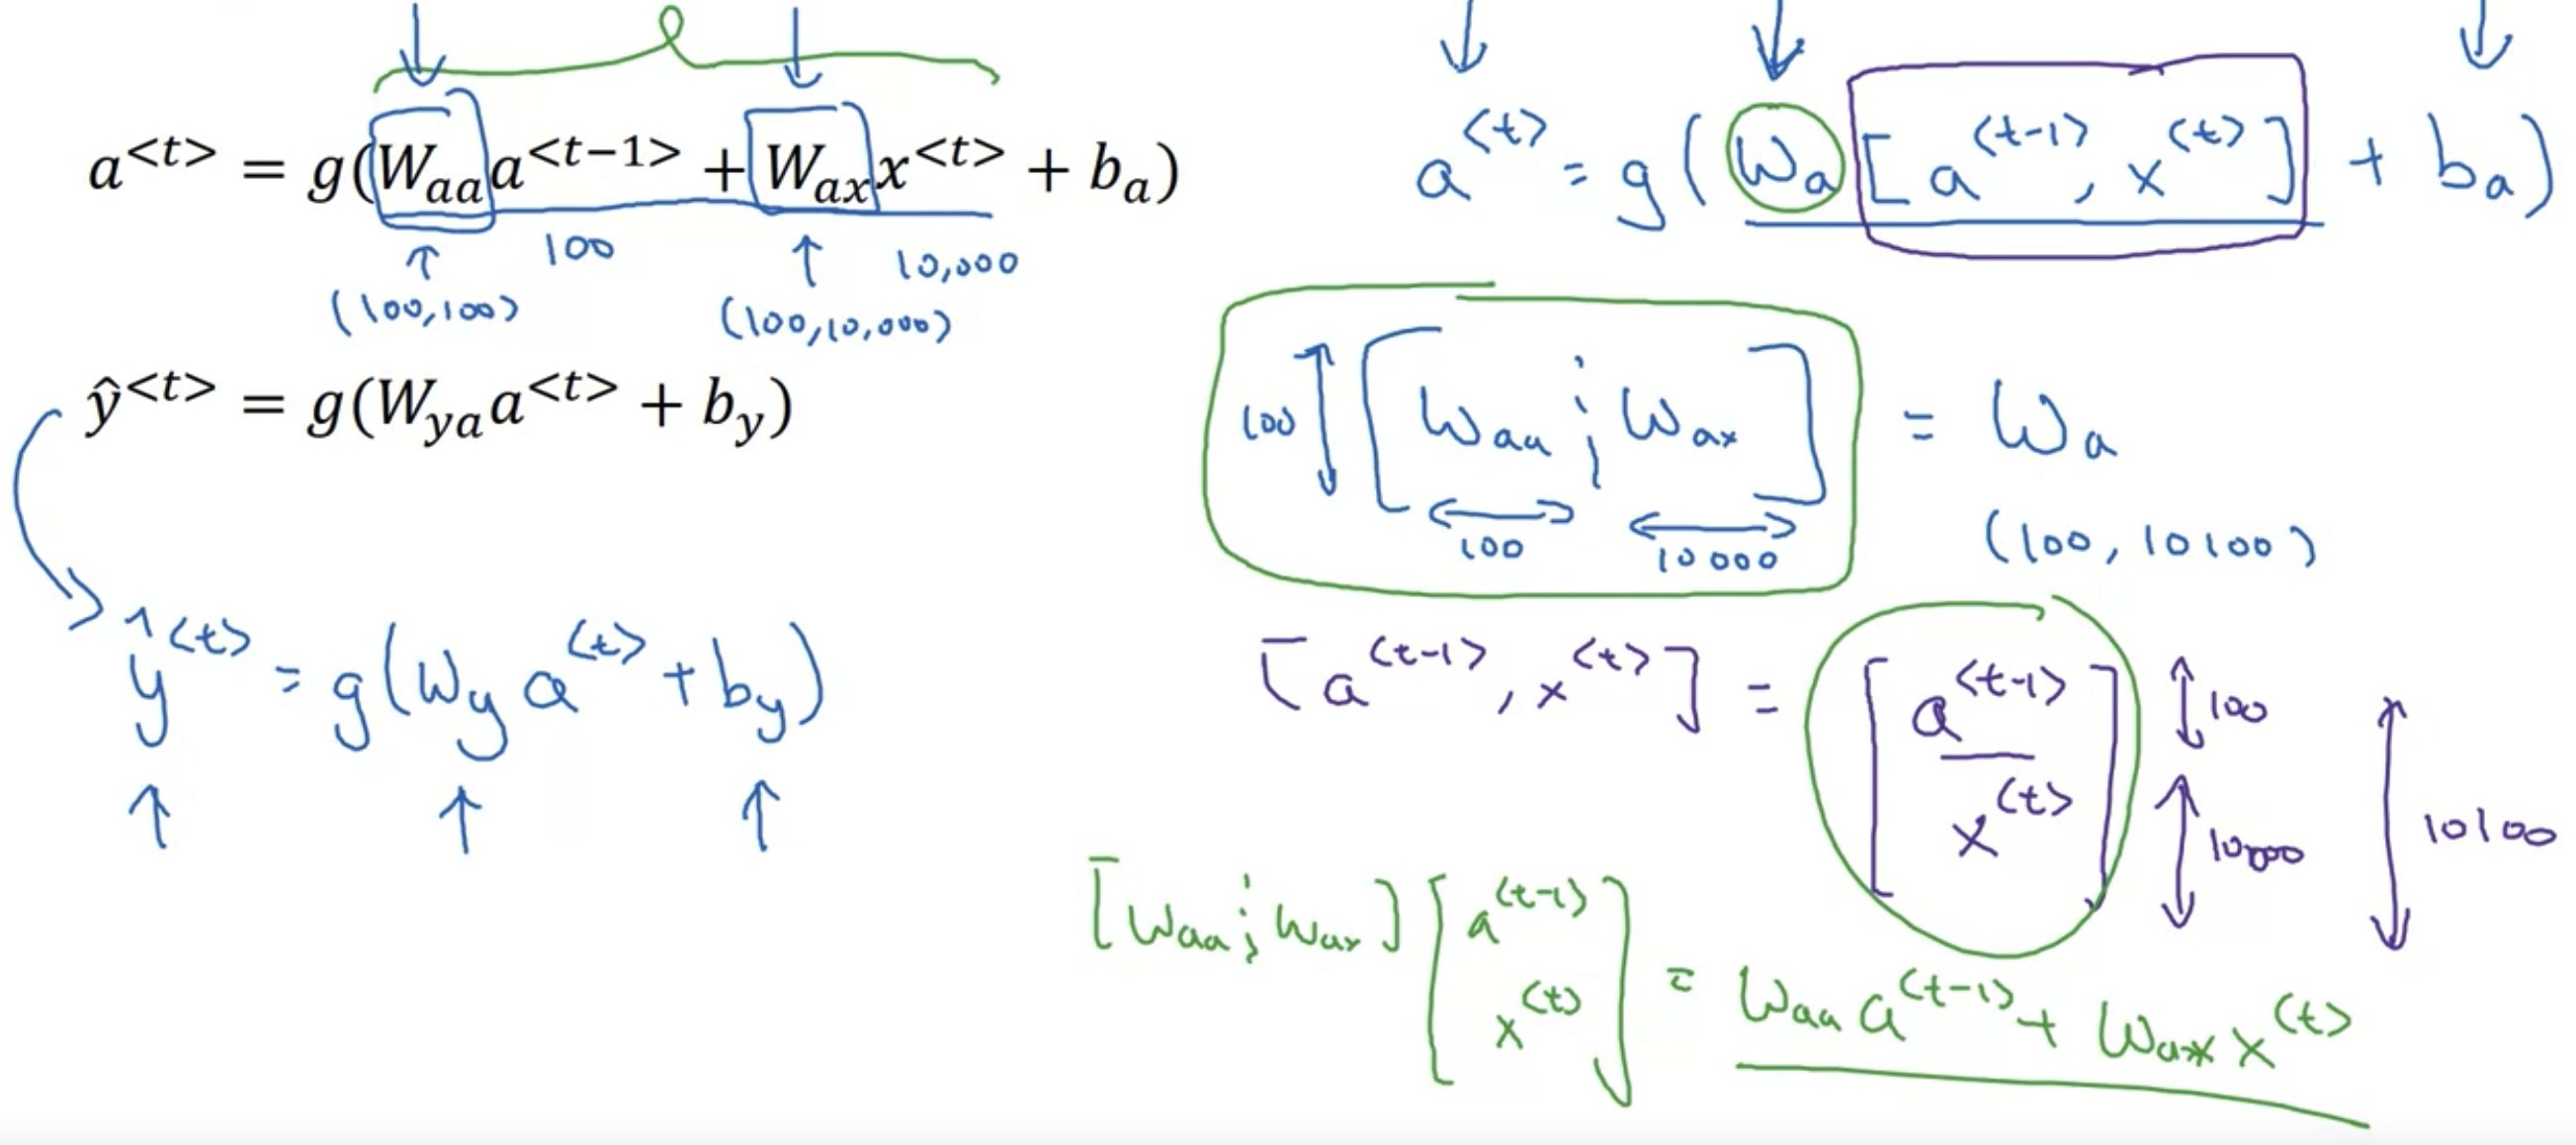 a<t> = g(Waa a<t−1> + Wax x<t> + ba)
100
10,000
(100,100)
(100,10,000)
ŷ<t> = g(Wya a<t> + by)
ŷ<t> = g(Wy a<t> + by)
a<t> = g(Wa [a<t-1>, x<t>] + ba)
100 [Waa ¦ Wax] = Wa
100
10000
(100, 10100)
[a<t-1>, x<t>] = [a<t-1>
x<t>]
100
10000
10100
[Waa ¦ Wax] [a<t-1>
x<t>] = Waa a<t-1> + Wax x<t>